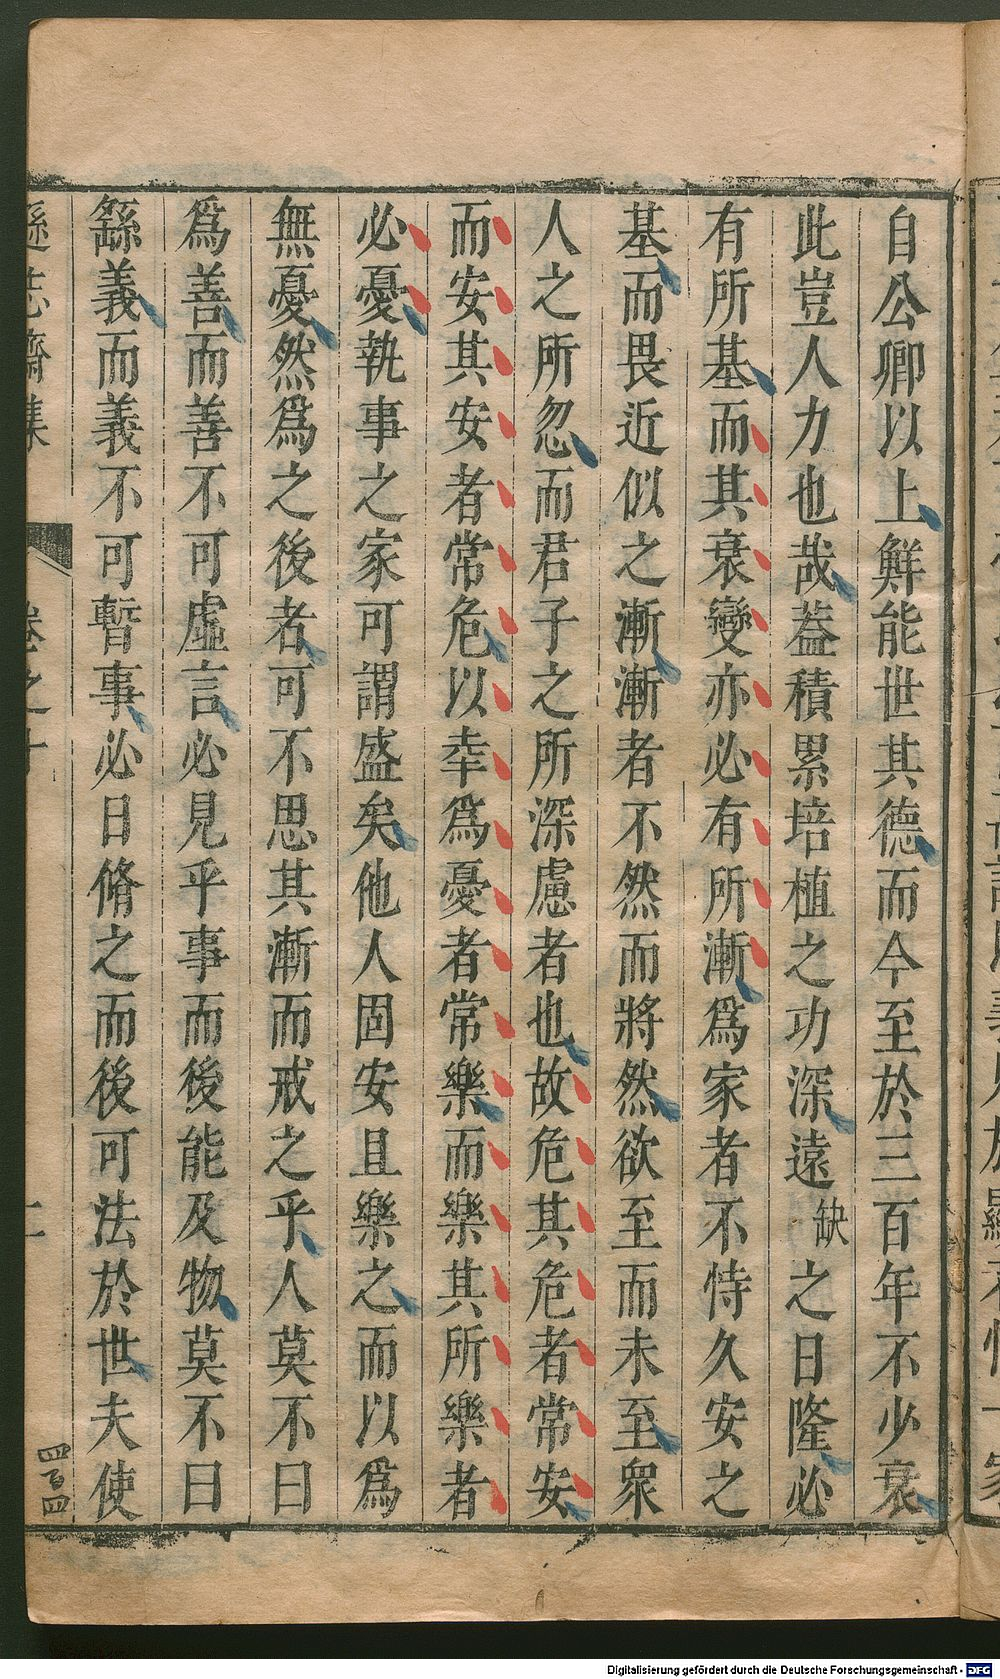 自公卿以上鮮能世其德而今至於三百年不少衰
此豈人力也哉葢積累培植之功深遠缺之日隆必
有所基而其衰變亦必有所漸爲家者不恃久安之
基而畏近似之漸漸者不然而將然欲至而未至衆
人之所忽而君子之所深慮者也故危其危者常安
而安其安者常危以幸爲憂者常樂而樂其所樂者
必憂執事之家可謂盛矣他人固安且樂之而以爲
無憂然爲之後者可不思其漸而戒之乎人莫不曰
爲善而善不可虛言必見乎事而後能及物莫不曰
繇義而義不可暫事必日脩之而後可法於世夫使
遜志齋集 卷之十
四百四
Digitalisierung gefördert durch die Deutsche Forschungsgemeinschaft - DFG